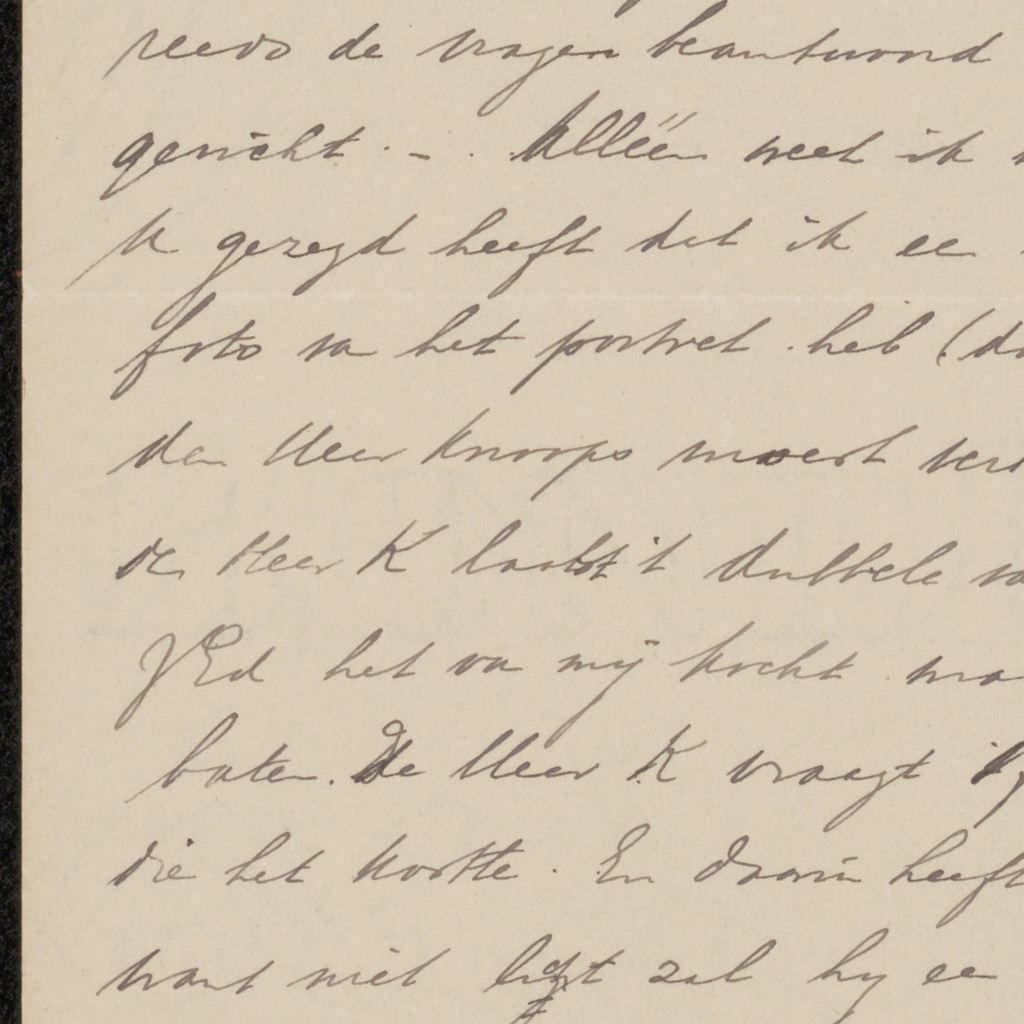 reeds de vragen beantwoord
gericht. - Alléén weet ik
U gezegd heeft dat ik een
foto van het portret heb (
den Heer Knoops moest
de Heer K laatst 't dubbele
UEd het van mij kocht
baten. De Heer K vraagt
die het kostte. En daarin heeft
want niet ligt zal hij een